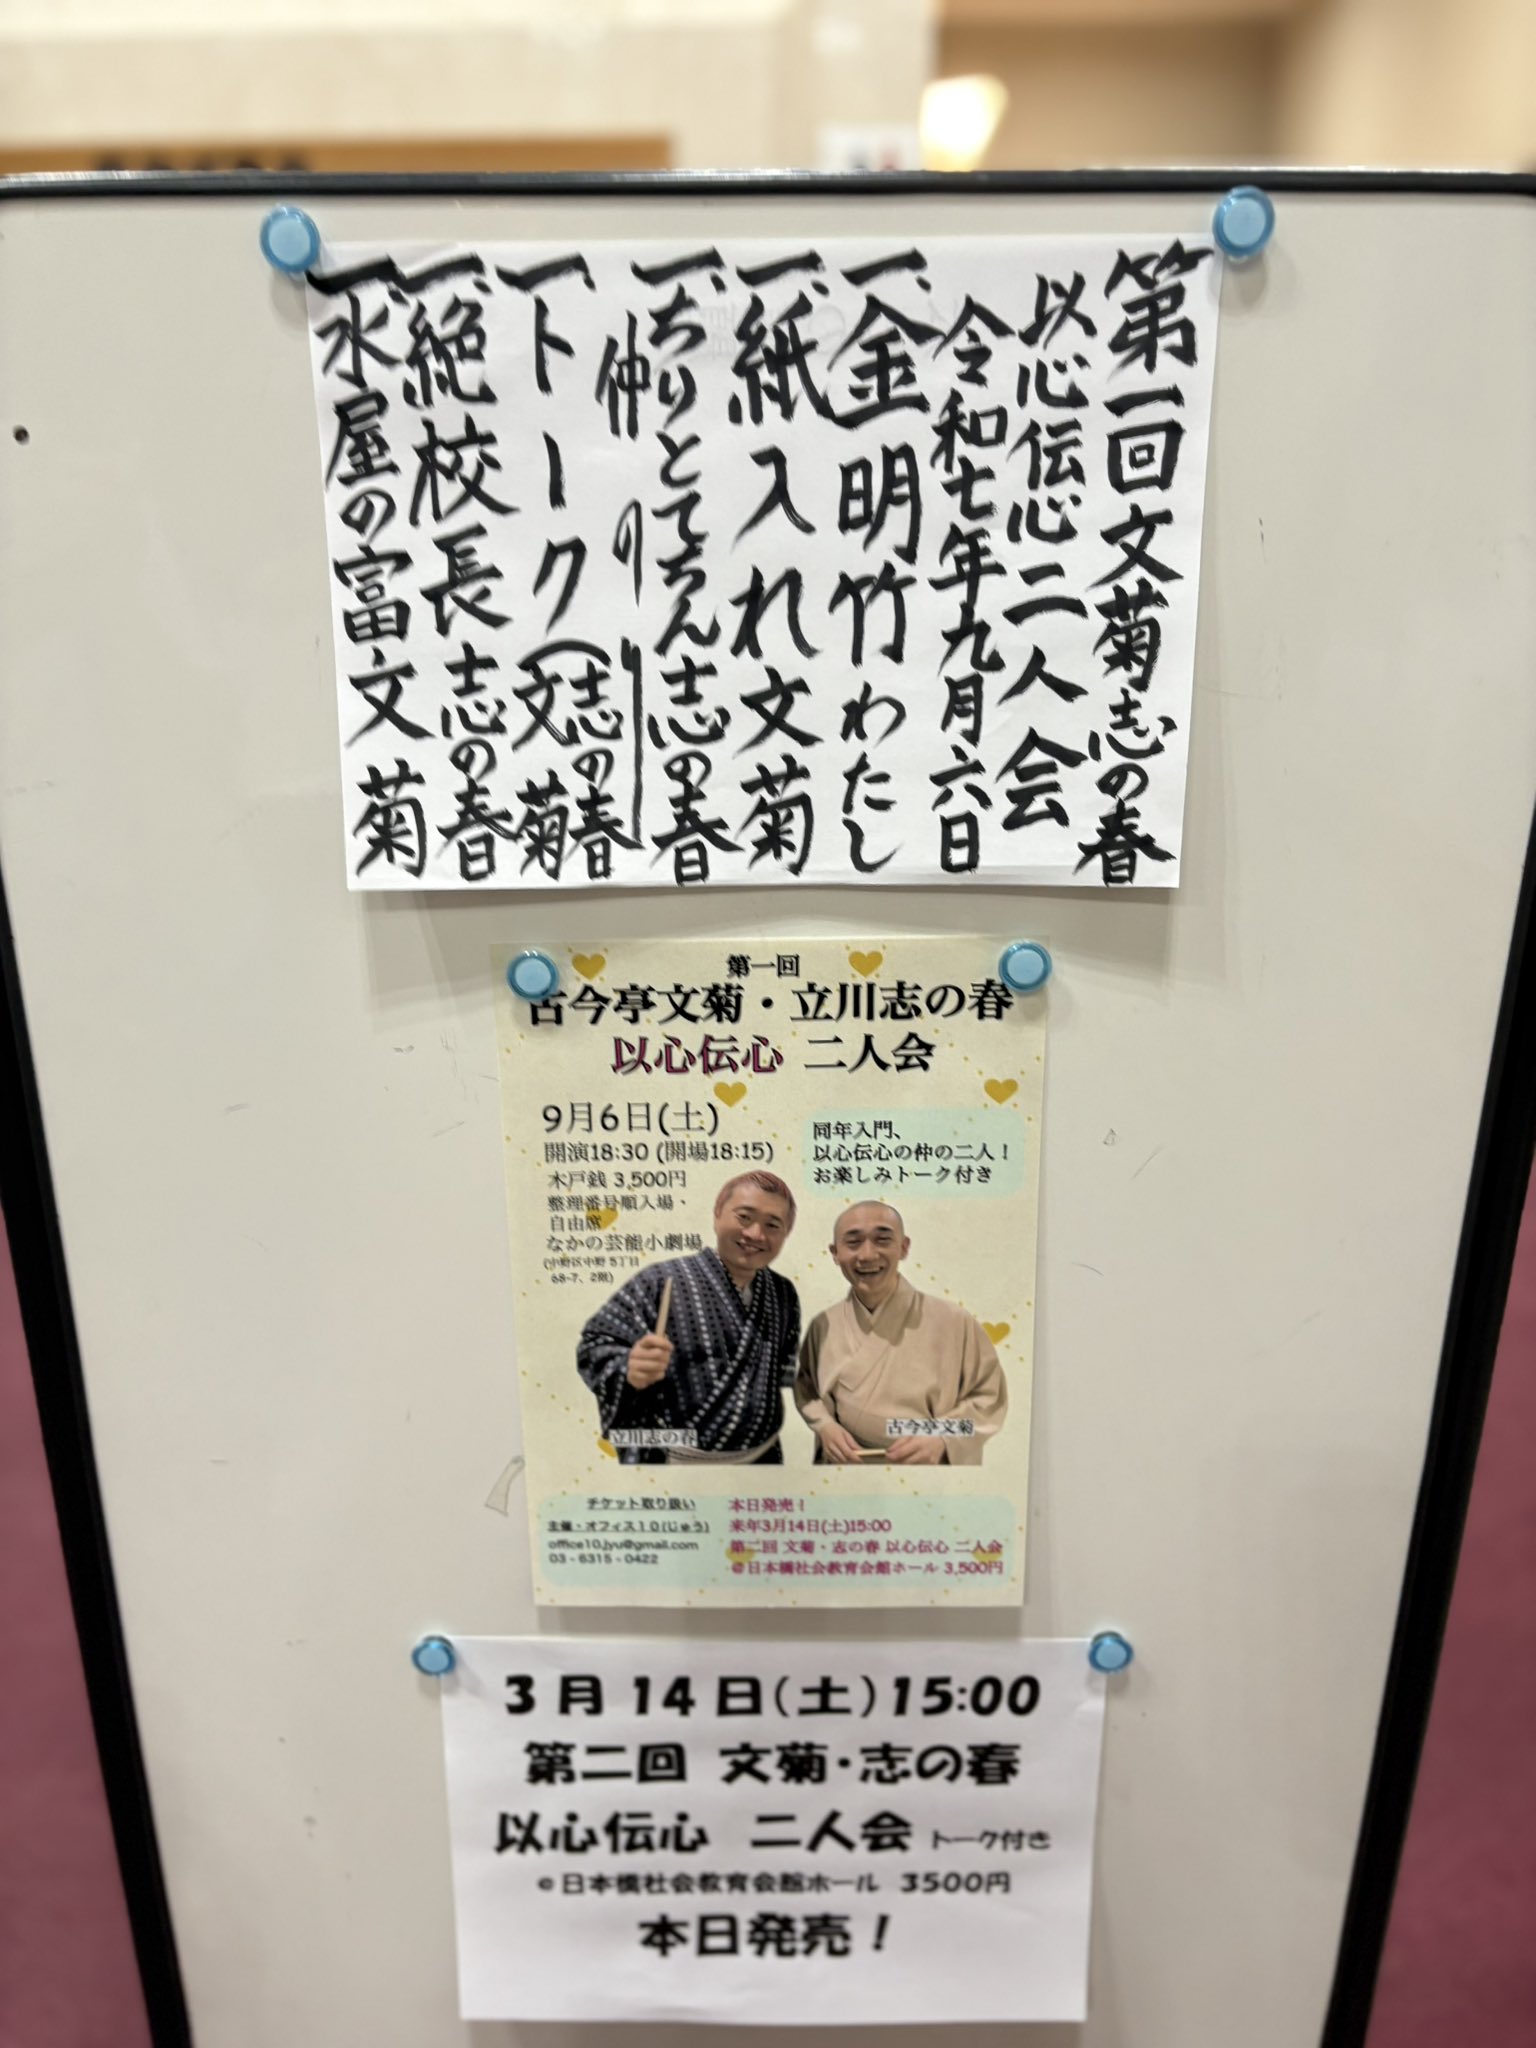 第一回文菊志の春
以心伝心二人会
令和七年九月六日
一、金明竹 わたし
一、紙入れ 文菊
一、ちりとてちん 志の春
仲入り
一、トーク(志の春
文菊
一、絶校長 志の春
一、水屋の富 文菊
第一回
古今亭文菊・立川志の春
以心伝心 二人会
9月6日(土)
開演18:30 (開場18:15)
木戸銭 3,500円
整理番号順入場・
自由席
なかの芸能小劇場
(中野区中野5丁目
68-7、2階)
同年入門、
以心伝心の仲の二人!
お楽しみトーク付き
立川志の春
古今亭文菊
チケット取り扱い
主催・オフィス10(じゅう)
office10.jyu@gmail.com
03-6315-0422
本日発売!
来年3月14日(土)15:00
第二回 文菊・志の春 以心伝心 二人会
@日本橋社会教育会館ホール 3,500円
3月14日(土)15:00
第二回 文菊・志の春
以心伝心 二人会 トーク付き
@日本橋社会教育会館ホール 3500円
本日発売!